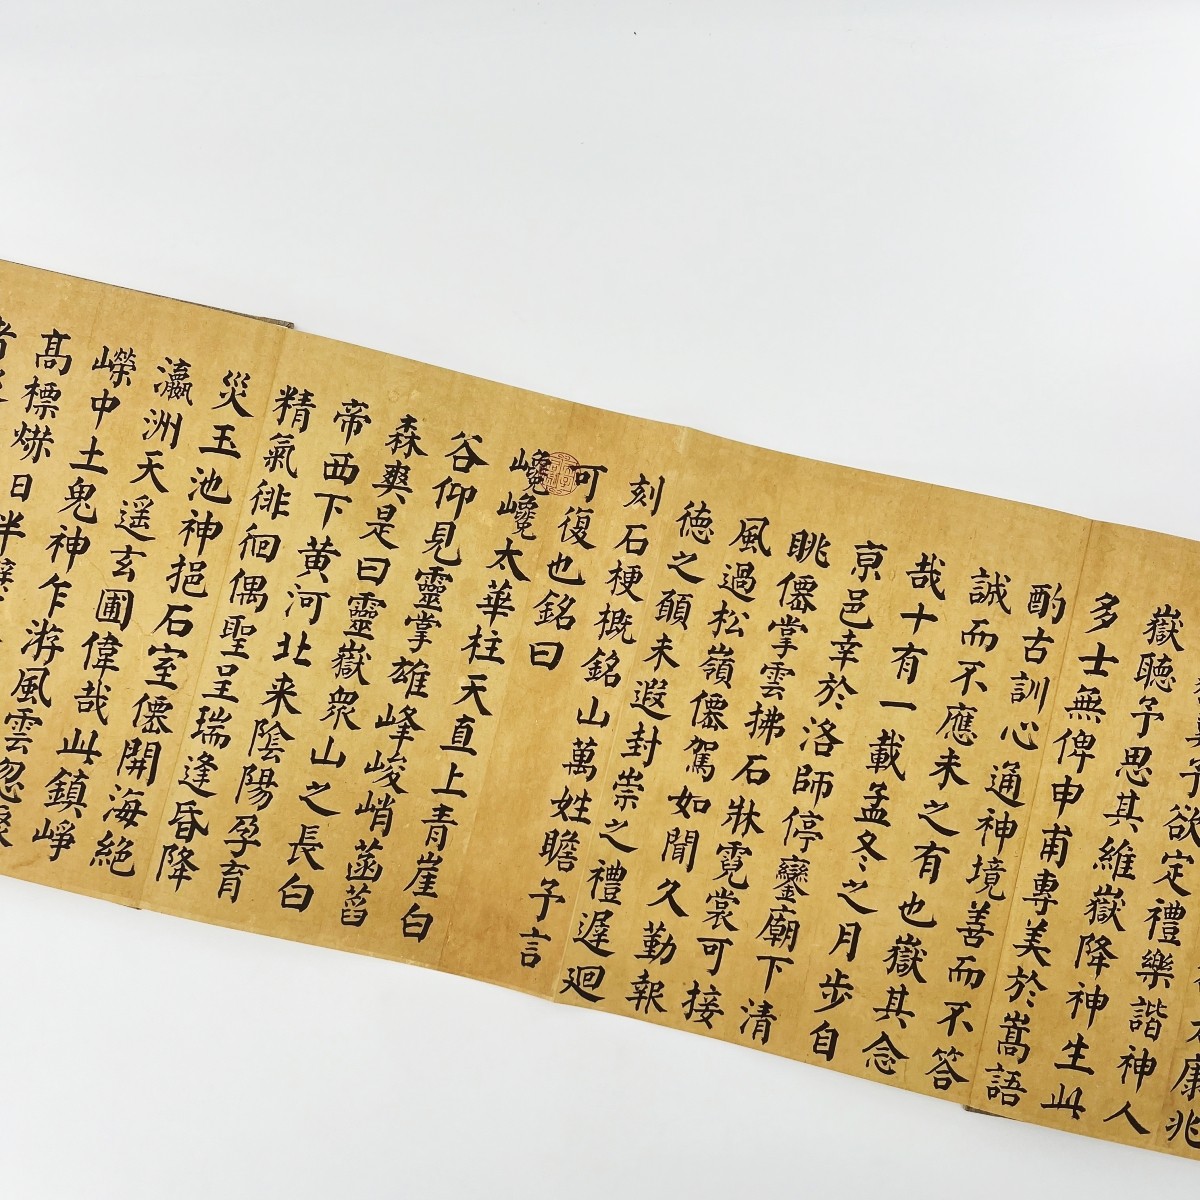 康兆
予欲定禮樂諧神人
嶽聽予思其維嶽降神生此
多士無俾申甫專美於嵩語
酌古訓心通神境善而不答
誠而不應未之有也嶽其念
哉十有一載孟冬之月步自
京邑幸於洛師停鑾廟下清
眺僊掌雲拂石牀霓裳可接
風過松嶺僊駕如聞久勤報
德之願未遐封崇之禮遲迴
刻石梗概銘山萬姓瞻予言
可復也銘曰
巉巉太華柱天直上青崖白
谷仰見靈掌雄峰峻峭菡萏
森爽是曰靈嶽眾山之長白
帝西下黃河北来陰陽孕育
精氣徘徊偶聖呈瑞逢昏降
災玉池神挹石室僊開海絕
瀛洲天遥玄圃偉哉此鎮崢
嶸中土鬼神乍游風雲忽聚
高標爀日半
者